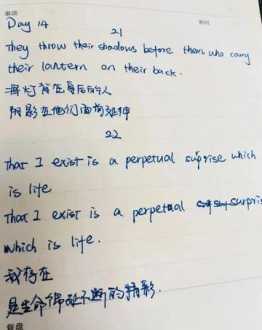 Day 14
21
They throw their shadows before them who carry
their lantern on their back.
将灯背在身后的人
阴影在他们面前延伸
22
That I exist is a perpetual suprise which
is life
That I exist is a perpetual surpris
which is life.
我存在
是生命 不断的
复盘